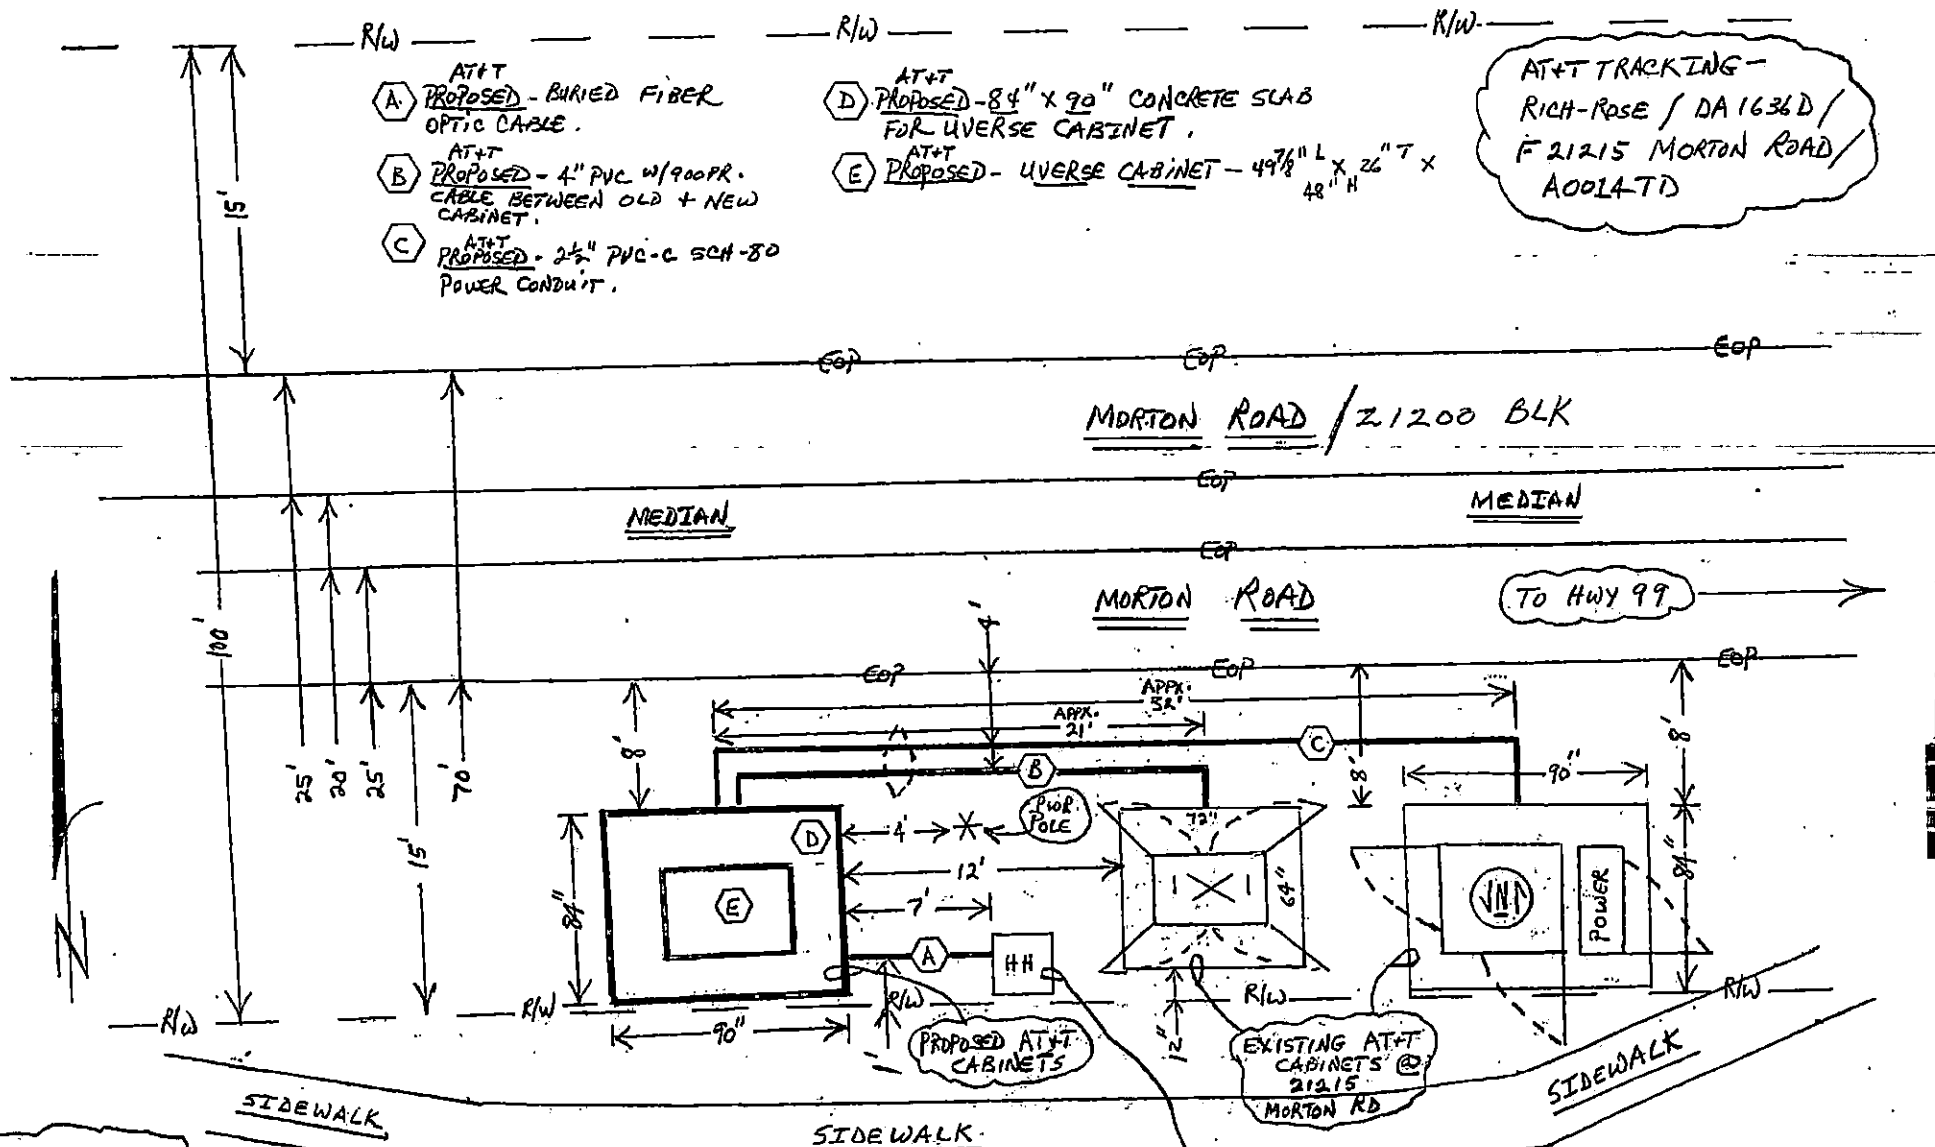 R/W
R/W
R/W
AT&T
A PROPOSED - BURIED FIBER
OPTIC CABLE.
AT&T
B PROPOSED - 4" PVC W/900PR.
CABLE BETWEEN OLD + NEW
CABINET.
AT&T
C PROPOSED - 2½" PVC-C SCH-80
POWER CONDUIT.
AT&T
D PROPOSED - 84" X 90" CONCRETE SLAB
FOR UVERSE CABINET.
AT&T
E PROPOSED - UVERSE CABINET - 49 7/8" L X 26" T X
48" H
AT&T TRACKING -
RICH-ROSE / DA 1636D /
F 21215 MORTON ROAD /
A0014TD
15'
EOP
EOP
EOP
MORTON ROAD / 21200 BLK
EOP
MEDIAN
MEDIAN
EOP
MORTON ROAD
TO HWY 99
100'
4'
EOP
EOP
EOP
25'
20'
25'
70'
15'
8'
APPX.
APPX.
21'
C
B
8'
90"
8'
84"
D
4'
PWR.
POLE
72"
12'
64"
84"
E
7'
POWER
A
HH
N
R/W
R/W
R/W
R/W
R/W
90"
1'
12"
PROPOSED AT&T
CABINETS
EXISTING AT&T
CABINETS @
21215
MORTON RD
SIDEWALK
SIDEWALK
SIDEWALK